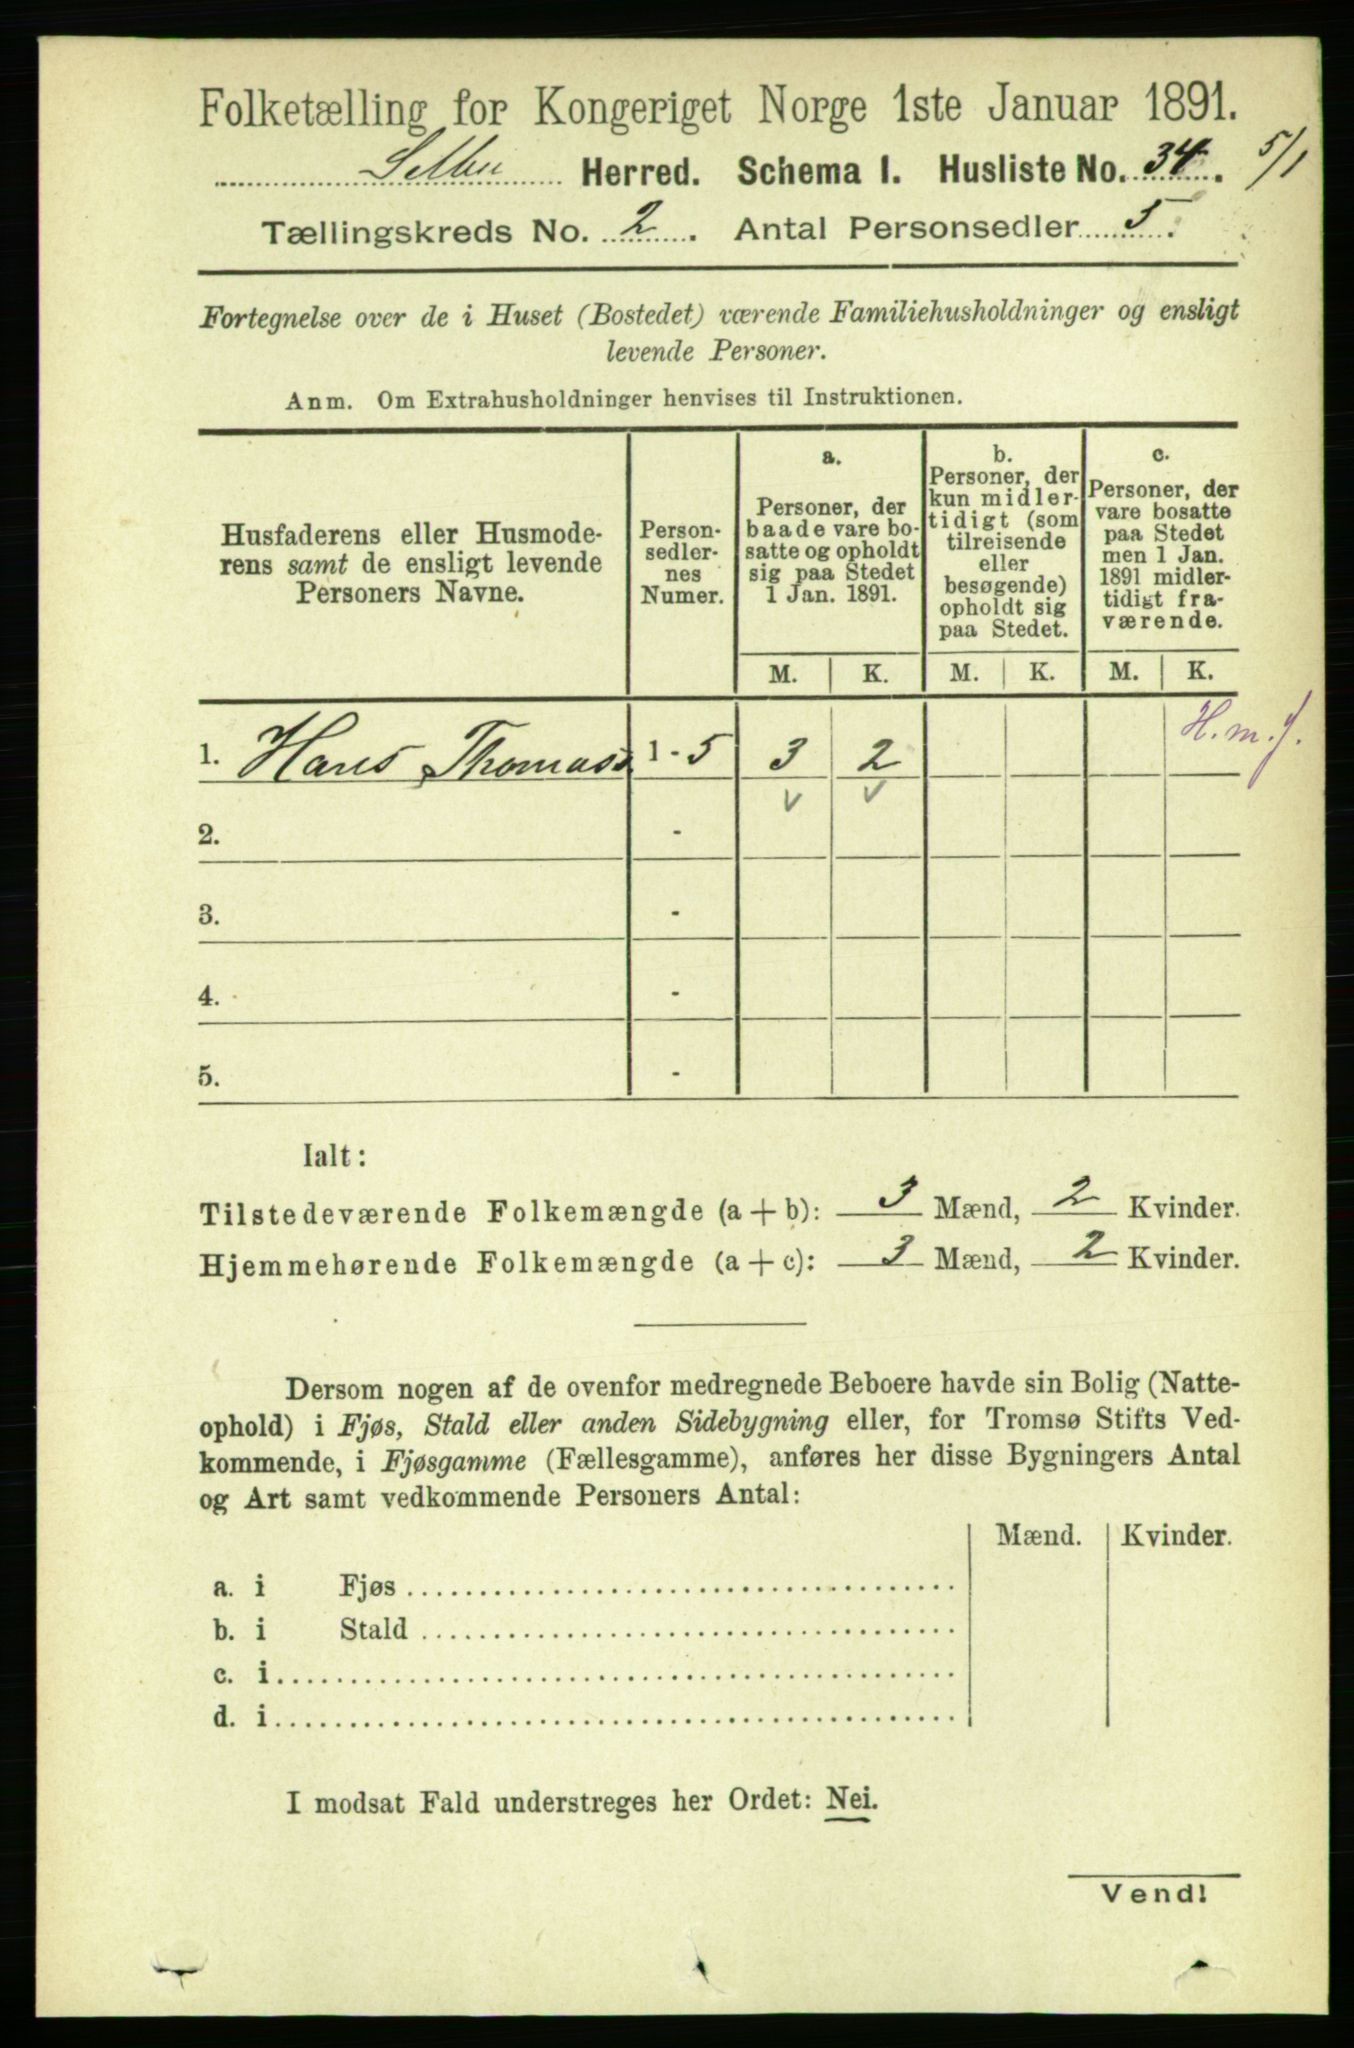 Folketælling for Kongeriget Norge 1ste Januar 1891.
Selbu Herred. Schema I. Husliste No. 34. 5/1
Tællingskreds No. 2. Antal Personsedler 5.
Fortegnelse over de i Huset (Bostedet) værende Familiehusholdninger og ensligt
levende Personer.
Anm. Om Extrahusholdninger henvises til Instruktionen.
Husfaderens eller Husmode-
rens samt de ensligt levende
Personers Navne.
Person-
sedler-
nes
Numer.
a.
Personer, der
baade vare bo-
satte og opholdt
sig paa Stedet
1 Jan. 1891.
b.
Personer, der
kun midler-
tidigt (som
tilreisende
eller
besøgende)
opholdt sig
paa Stedet.
c.
Personer, der
vare bosatte
paa Stedet
men 1 Jan.
1891 midler-
tidigt fra-
værende.
M. K. M. K. M. K.
1. Hans Thomass. 1 - 5 3 2 H.m.f.
2. -
3. -
4. -
5. -
Ialt:
Tilstedeværende Folkemængde (a + b): 3 Mænd, 2 Kvinder.
Hjemmehørende Folkemængde (a + c): 3 Mænd, 2 Kvinder.
Dersom nogen af de ovenfor medregnede Beboere havde sin Bolig (Natte-
ophold) i Fjøs, Stald eller anden Sidebygning eller, for Tromsø Stifts Ved-
kommende, i Fjøsgamme (Fællesgamme), anføres her disse Bygningers Antal
og Art samt vedkommende Personers Antal:
Mænd. Kvinder.
a. i Fjøs
b. i Stald
c. i
d. i
I modsat Fald understreges her Ordet: Nei.
Vend!